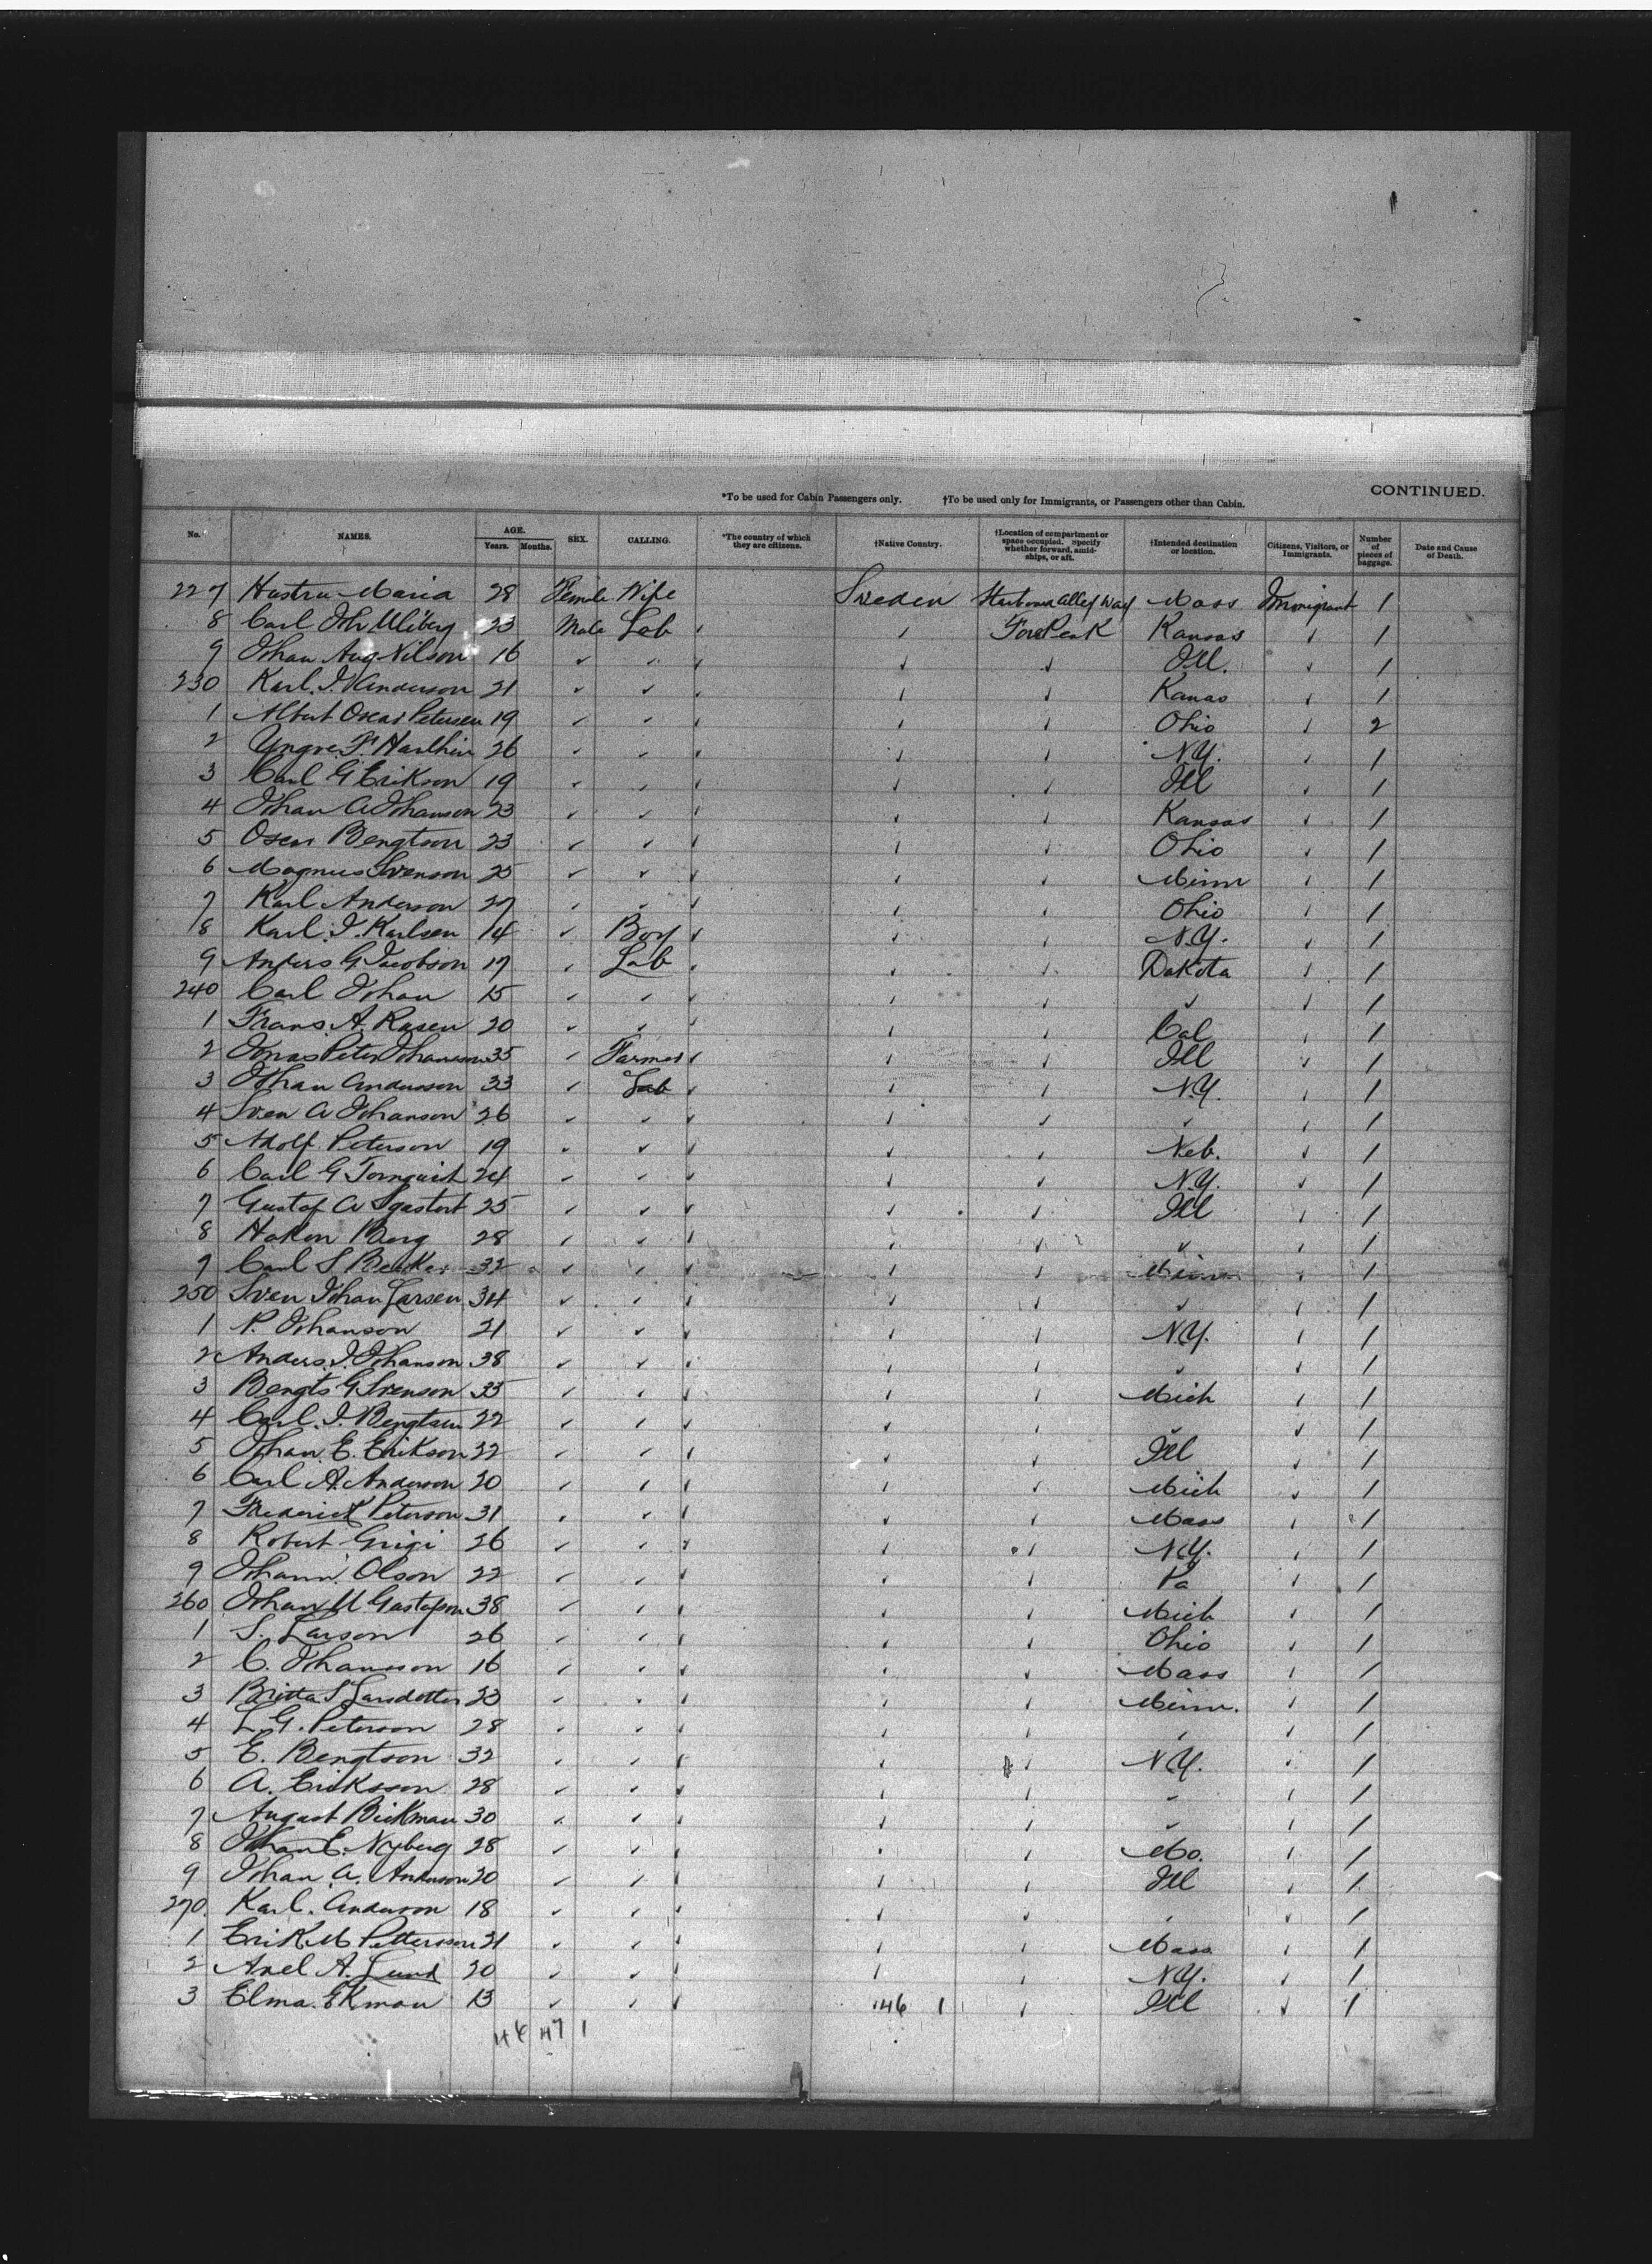 CONTINUED.
*To be used for Cabin Passengers only. †To be used only for Immigrants, or Passengers other than Cabin.
No. NAMES. AGE. Years. Months. SEX. CALLING. *The country of which they are citizens. †Native Country. †Location of compartment or space occupied. Specify whether forward, amidships, or aft. †Intended destination or location. Citizens, Visitors, or Immigrants. Number of pieces of baggage. Date and Cause of Death.
227 Hustru Maria 28 Female Wife Sweden Starboard Alley Way Mass Immigrant 1
8 Carl Joh 23 Male Lab ✓ ✓ Fore Peak Kansas ✓ 1
9 Johan Aug Nilson 16 ✓ ✓ ✓ ✓ ✓ Ill. ✓ 1
230 Karl J. Anderson 21 ✓ ✓ ✓ ✓ ✓ Kanas ✓ 1
1 Albert Oscar Petersen 19 ✓ ✓ ✓ ✓ ✓ Ohio ✓ 2
2 Yngve F. 26 ✓ ✓ ✓ ✓ ✓ N.Y. ✓ 1
3 Carl G Erikson 19 ✓ ✓ ✓ ✓ ✓ Ill ✓ 1
4 Johan A Johanson 23 ✓ ✓ ✓ ✓ ✓ Kansas ✓ 1
5 Oscar Bengtson 23 ✓ ✓ ✓ ✓ ✓ Ohio ✓ 1
6 Magnus Svenson 25 ✓ ✓ ✓ ✓ ✓ Minn ✓ 1
7 Karl Anderson 27 ✓ ✓ ✓ ✓ ✓ Ohio ✓ 1
8 Karl J. Karlsen 14 ✓ Boy ✓ ✓ ✓ N.Y. ✓ 1
9 Anders G Jacobson 17 ✓ Lab ✓ ✓ ✓ Dakota ✓ 1
240 Carl Johan 15 ✓ ✓ ✓ ✓ ✓ ✓ 1
1 Frans A. Rosen 20 ✓ ✓ ✓ ✓ Cal ✓ 1
2 Jonas Peter Johanson 35 ✓ Farmer ✓ ✓ ✓ Ill ✓ 1
3 Johan Andersson 33 ✓ Lab ✓ ✓ ✓ N.Y. ✓ 1
4 Sven A Johanson 26 ✓ ✓ ✓ ✓ ✓ ✓ ✓ 1
5 Adolf Peterson 19 ✓ ✓ ✓ ✓ ✓ Neb. ✓ 1
6 Carl G Tornquist 24 ✓ ✓ ✓ ✓ ✓ N.Y. ✓ 1
7 Gustaf A 25 ✓ ✓ ✓ ✓ ✓ Ill ✓ 1
8 Hakon Berg 28 ✓ ✓ ✓ ✓ ✓ ✓ ✓ 1
9 Carl S Becker 32 ✓ ✓ ✓ ✓ ✓ Minn ✓ 1
250 Sven Johan Larsen 34 ✓ ✓ ✓ ✓ ✓ ✓ ✓ 1
1 P. Johanson 21 ✓ ✓ ✓ ✓ ✓ N.Y. ✓ 1
2 Anders J. Johanson 38 ✓ ✓ ✓ ✓ ✓ ✓ ✓ 1
3 Bengts G Svenson 35 ✓ ✓ ✓ ✓ ✓ Mich ✓ 1
4 Carl J. Bengtsen 22 ✓ ✓ ✓ ✓ ✓ ✓ ✓ 1
5 Johan E. Erikson 22 ✓ ✓ ✓ ✓ ✓ Ill ✓ 1
6 Carl A. Anderson 20 ✓ ✓ ✓ ✓ ✓ Mich ✓ 1
7 Frederick Peterson 31 ✓ ✓ ✓ ✓ ✓ Mass ✓ 1
8 Robert Grigi 26 ✓ ✓ ✓ ✓ ✓ N.Y. ✓ 1
9 Johann Olson 22 ✓ ✓ ✓ ✓ ✓ Pa ✓ 1
260 Johan U Gustafson 38 ✓ ✓ ✓ ✓ ✓ Mich ✓ 1
1 S. Larson 26 ✓ ✓ ✓ ✓ ✓ Ohio ✓ 1
2 C. Johansson 16 ✓ ✓ ✓ ✓ ✓ Mass ✓ 1
3 Britta S Larsdotter 23 ✓ ✓ ✓ ✓ ✓ Minn. ✓ 1
4 L. G. Peterson 28 ✓ ✓ ✓ ✓ ✓ ✓ ✓ 1
5 E. Bengtson 32 ✓ ✓ ✓ ✓ ✓ N.Y. ✓ 1
6 A. Eriksson 28 ✓ ✓ ✓ ✓ ✓ ✓ ✓ 1
7 August Bickman 30 ✓ ✓ ✓ ✓ ✓ ✓ ✓ 1
8 Johan E. Nyberg 28 ✓ ✓ ✓ ✓ ✓ Mo. ✓ 1
9 Johan A. Anderson 20 ✓ ✓ ✓ ✓ ✓ Ill ✓ 1
270 Karl. Anderson 18 ✓ ✓ ✓ ✓ ✓ ✓ ✓ 1
1 Erik M Pettersson 21 ✓ ✓ ✓ ✓ ✓ Mass ✓ 1
2 Axel A. Lund 20 ✓ ✓ ✓ ✓ ✓ N.Y. ✓ 1
3 Elma. Ekman 13 ✓ ✓ ✓ 146 1 ✓ Ill ✓ 1